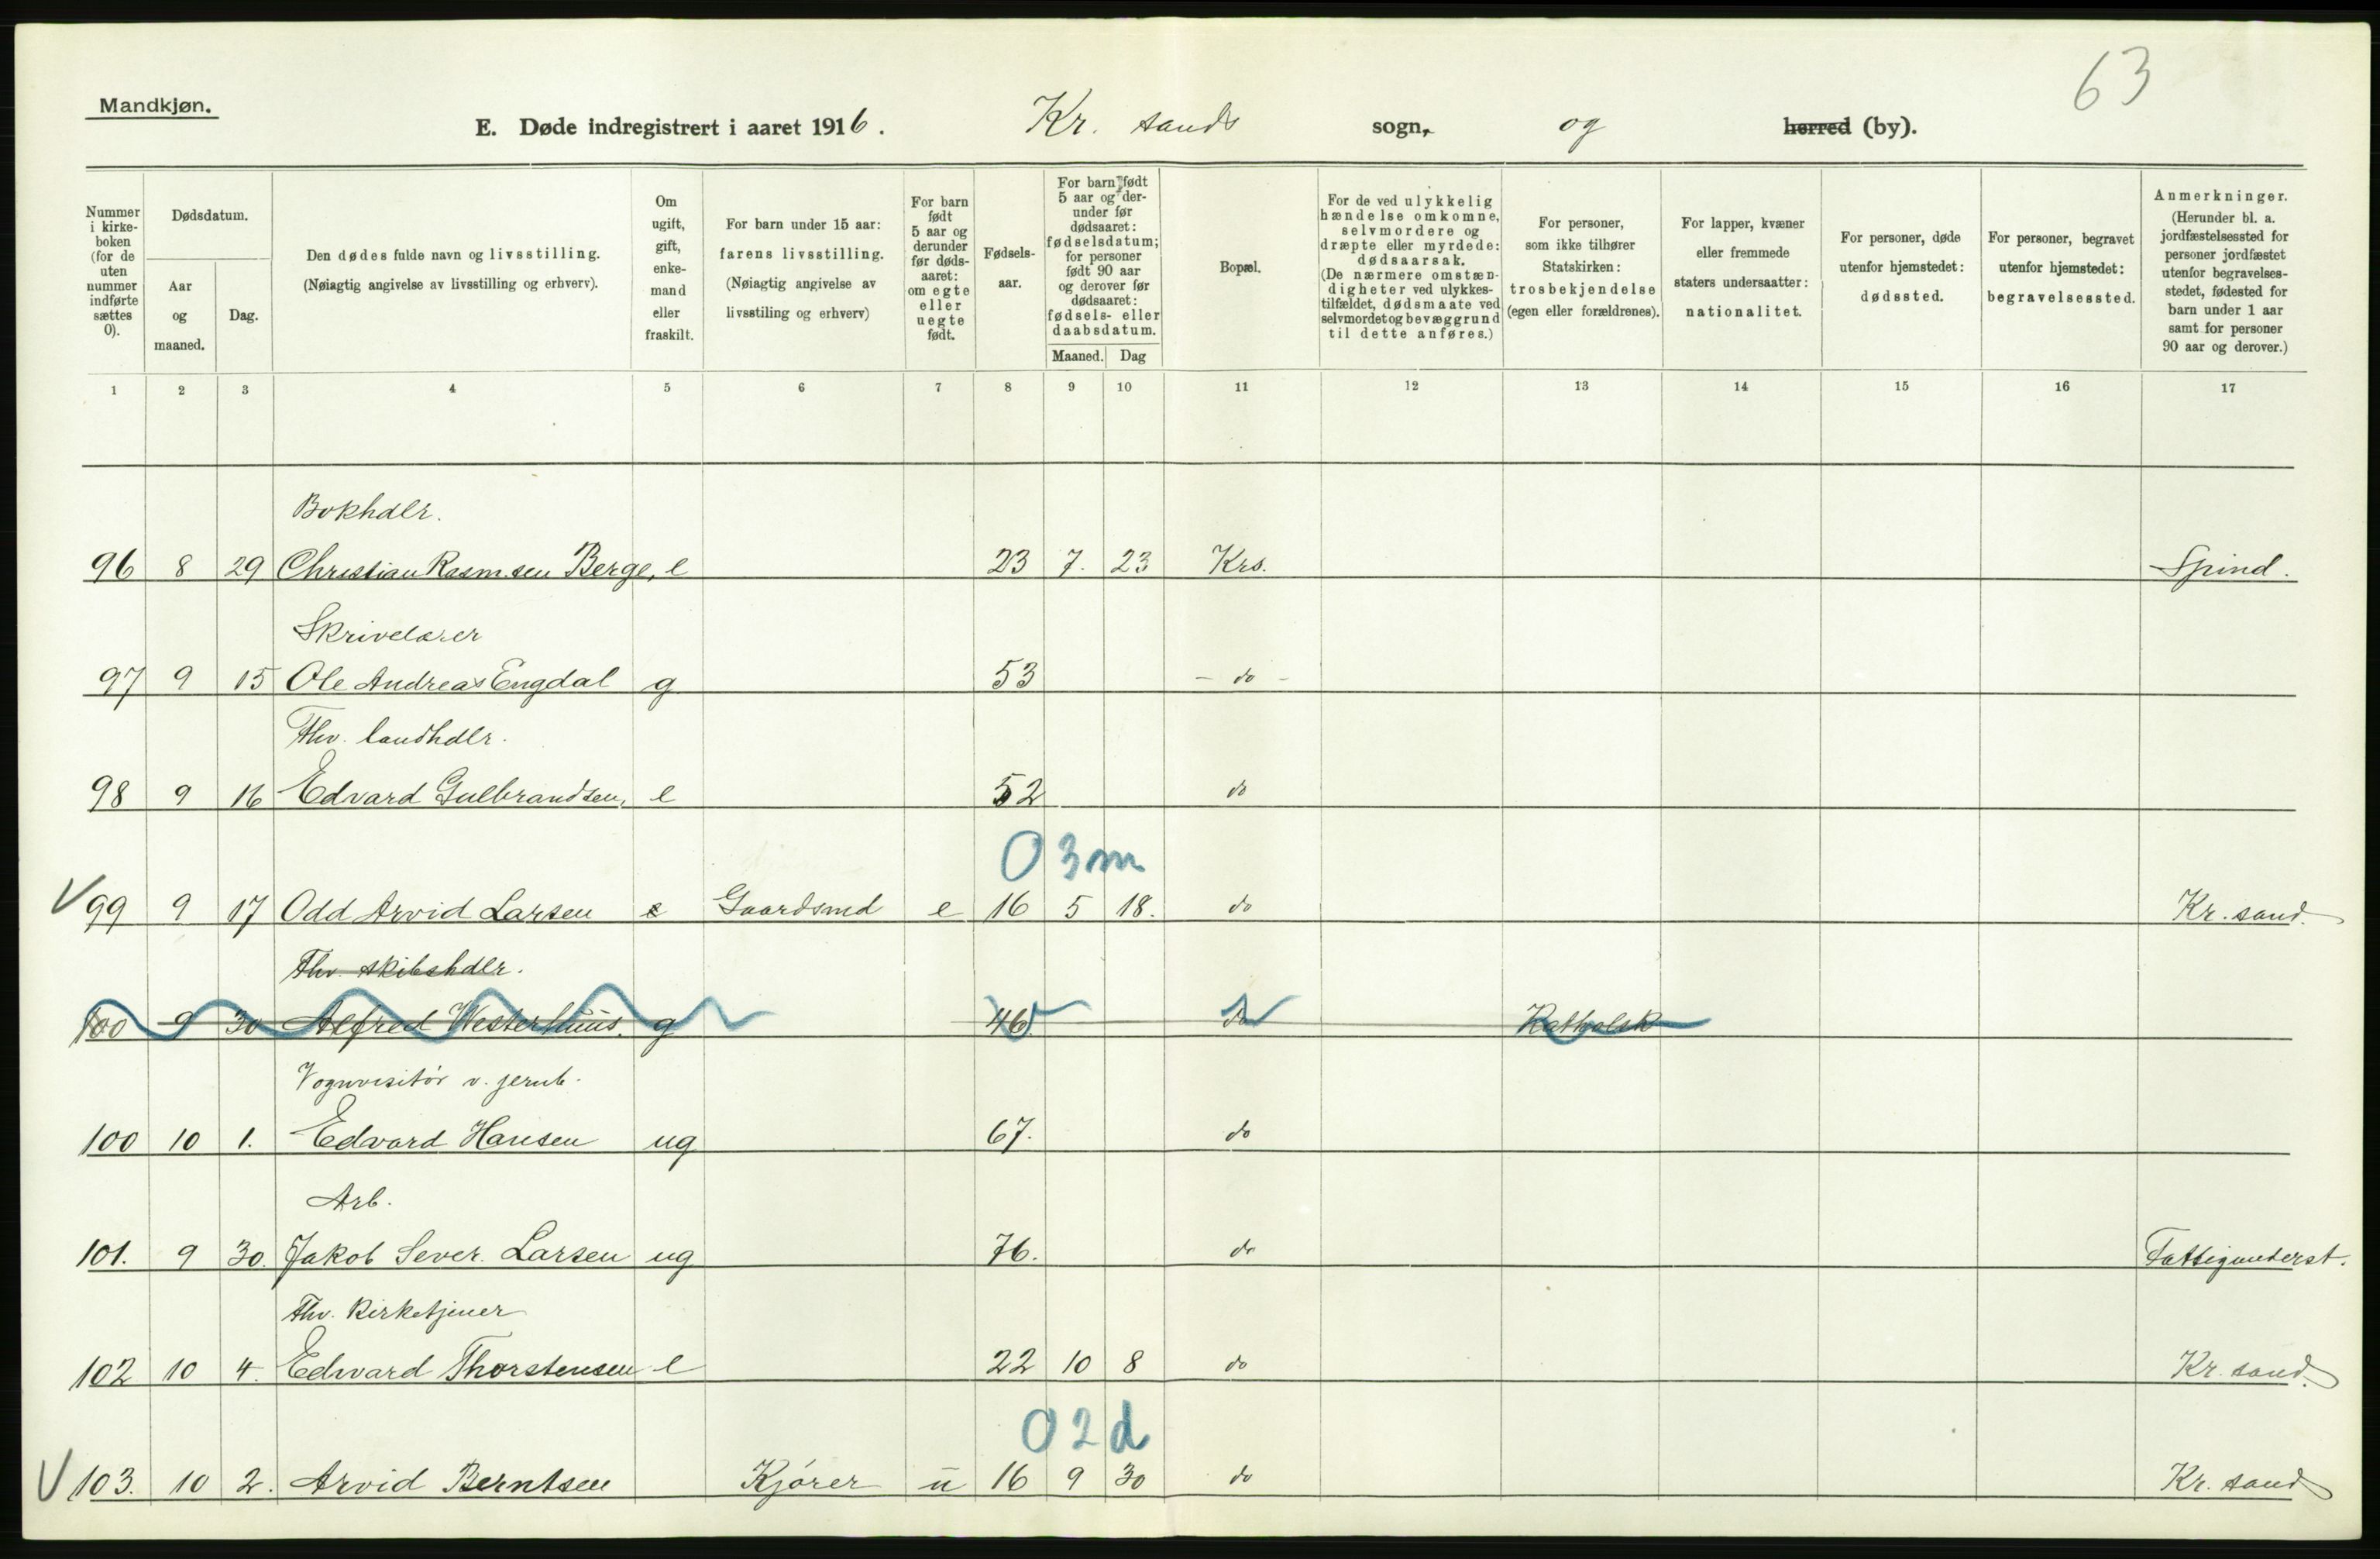 63
Mandkjøn.
E. Døde indregistrert i aaret 1916. Kr. sands sogn, og herred (by).
Nummer i kirkeboken (for de uten nummer indførte sættes 0).
Dødsdatum.
Aar og maaned.
Dag.
Den dødes fulde navn og livsstilling.
(Nøiagtig angivelse av livsstilling og erhverv).
Om ugift, gift, enkemand eller fraskilt.
For barn under 15 aar: farens livsstilling.
(Nøiagtig angivelse av livsstiling og erhverv)
For barn født 5 aar og derunder før dødsaaret: om egte eller uegte født.
Fødselsaar.
For barn født 5 aar og derunder før dødsaaret: fødselsdatum; for personer født 90 aar og derover før dødsaaret: fødsels- eller daabsdatum.
Maaned. Dag
Bopæl.
For de ved ulykkelig hændelse omkomne, selvmordere og dræpte eller myrdede: dødsaarsak.
(De nærmere omstændigheter ved ulykkestilfældet, dødsmaate ved selvmordet og bevæggrund til dette anføres.)
For personer, som ikke tilhører Statskirken: trosbekjendelse (egen eller forældrenes).
For lapper, kvæner eller fremmede staters undersaatter: nationalitet.
For personer, døde utenfor hjemstedet: dødssted.
For personer, begravet utenfor hjemstedet: begravelsessted.
Anmerkninger.
(Herunder bl. a. jordfæstelsessted for personer jordfæstet utenfor begravelsesstedet, fødested for barn under 1 aar samt for personer 90 aar og derover.)
1 2 3 4 5 6 7 8 9 10 11 12 13 14 15 16 17
Bokhdlr.
96 8 29 Christian Rasm.sen Berge, e 23 7. 23 Krs. Spind.
Skrivelærer
97 9 15 Ole Andreas Engdal g 53 - do -
Fhv. landhdlr.
98 9 16 Edvard Gulbrandsen, e 52 do
0 3m
V 99 9 17 Odd Arvid Larsen Gaardsmd e 16 5 18. do Kr. sand.
Fhv. skibshdlr.
100 9 30 Alfred Westerhuus. g 46. do Katholsk
Vognvisitör v. jernb.
100 10 1. Edvard Hansen ug 67. do
Arb.
101. 9 30. Jakob Sever. Larsen ug 76. do Fattigunderst.
Fhv. Kirketjener
102 10 4. Edvard Thorstensen e 22 10 8 do Kr. sand.
0 2 d
V 103. 10 2. Arvid Berntsen Kjörer u 16 9 30 do Kr. sand